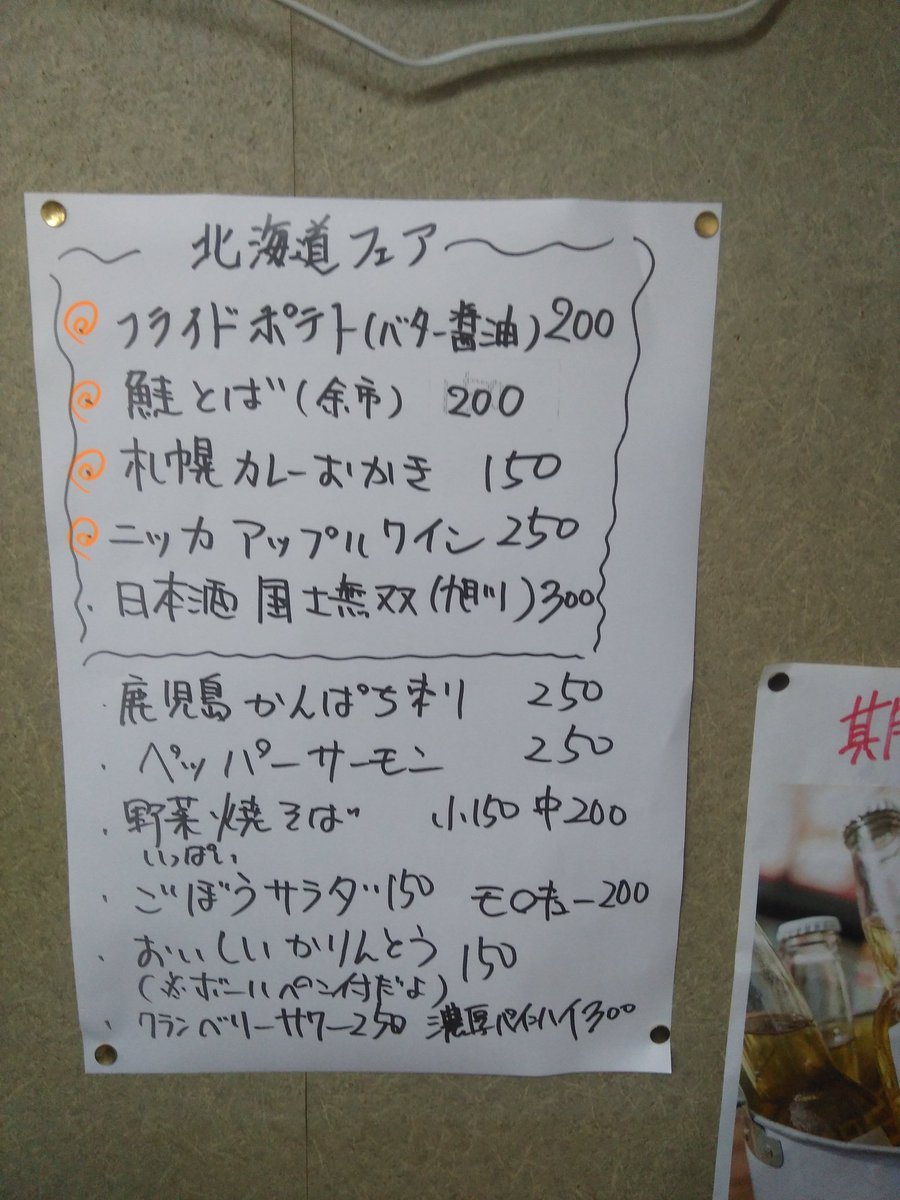 北海道フェア
フライドポテト(バター醤油)200
鮭とば(余市) 200
札幌カレーおかき 150
ニッカ アップルワイン 250
・日本酒 国士無双(旭川)300
・鹿児島かんぱち刺 250
・ペッパーサーモン 250
・野菜焼そば 小150 中200
いっぱい
・ごぼうサラダ150 モロキュー200
・おいしいかりんとう 150
(※ボールペン付だよ)
・クランベリーサワー250 濃厚パインハイ300
期